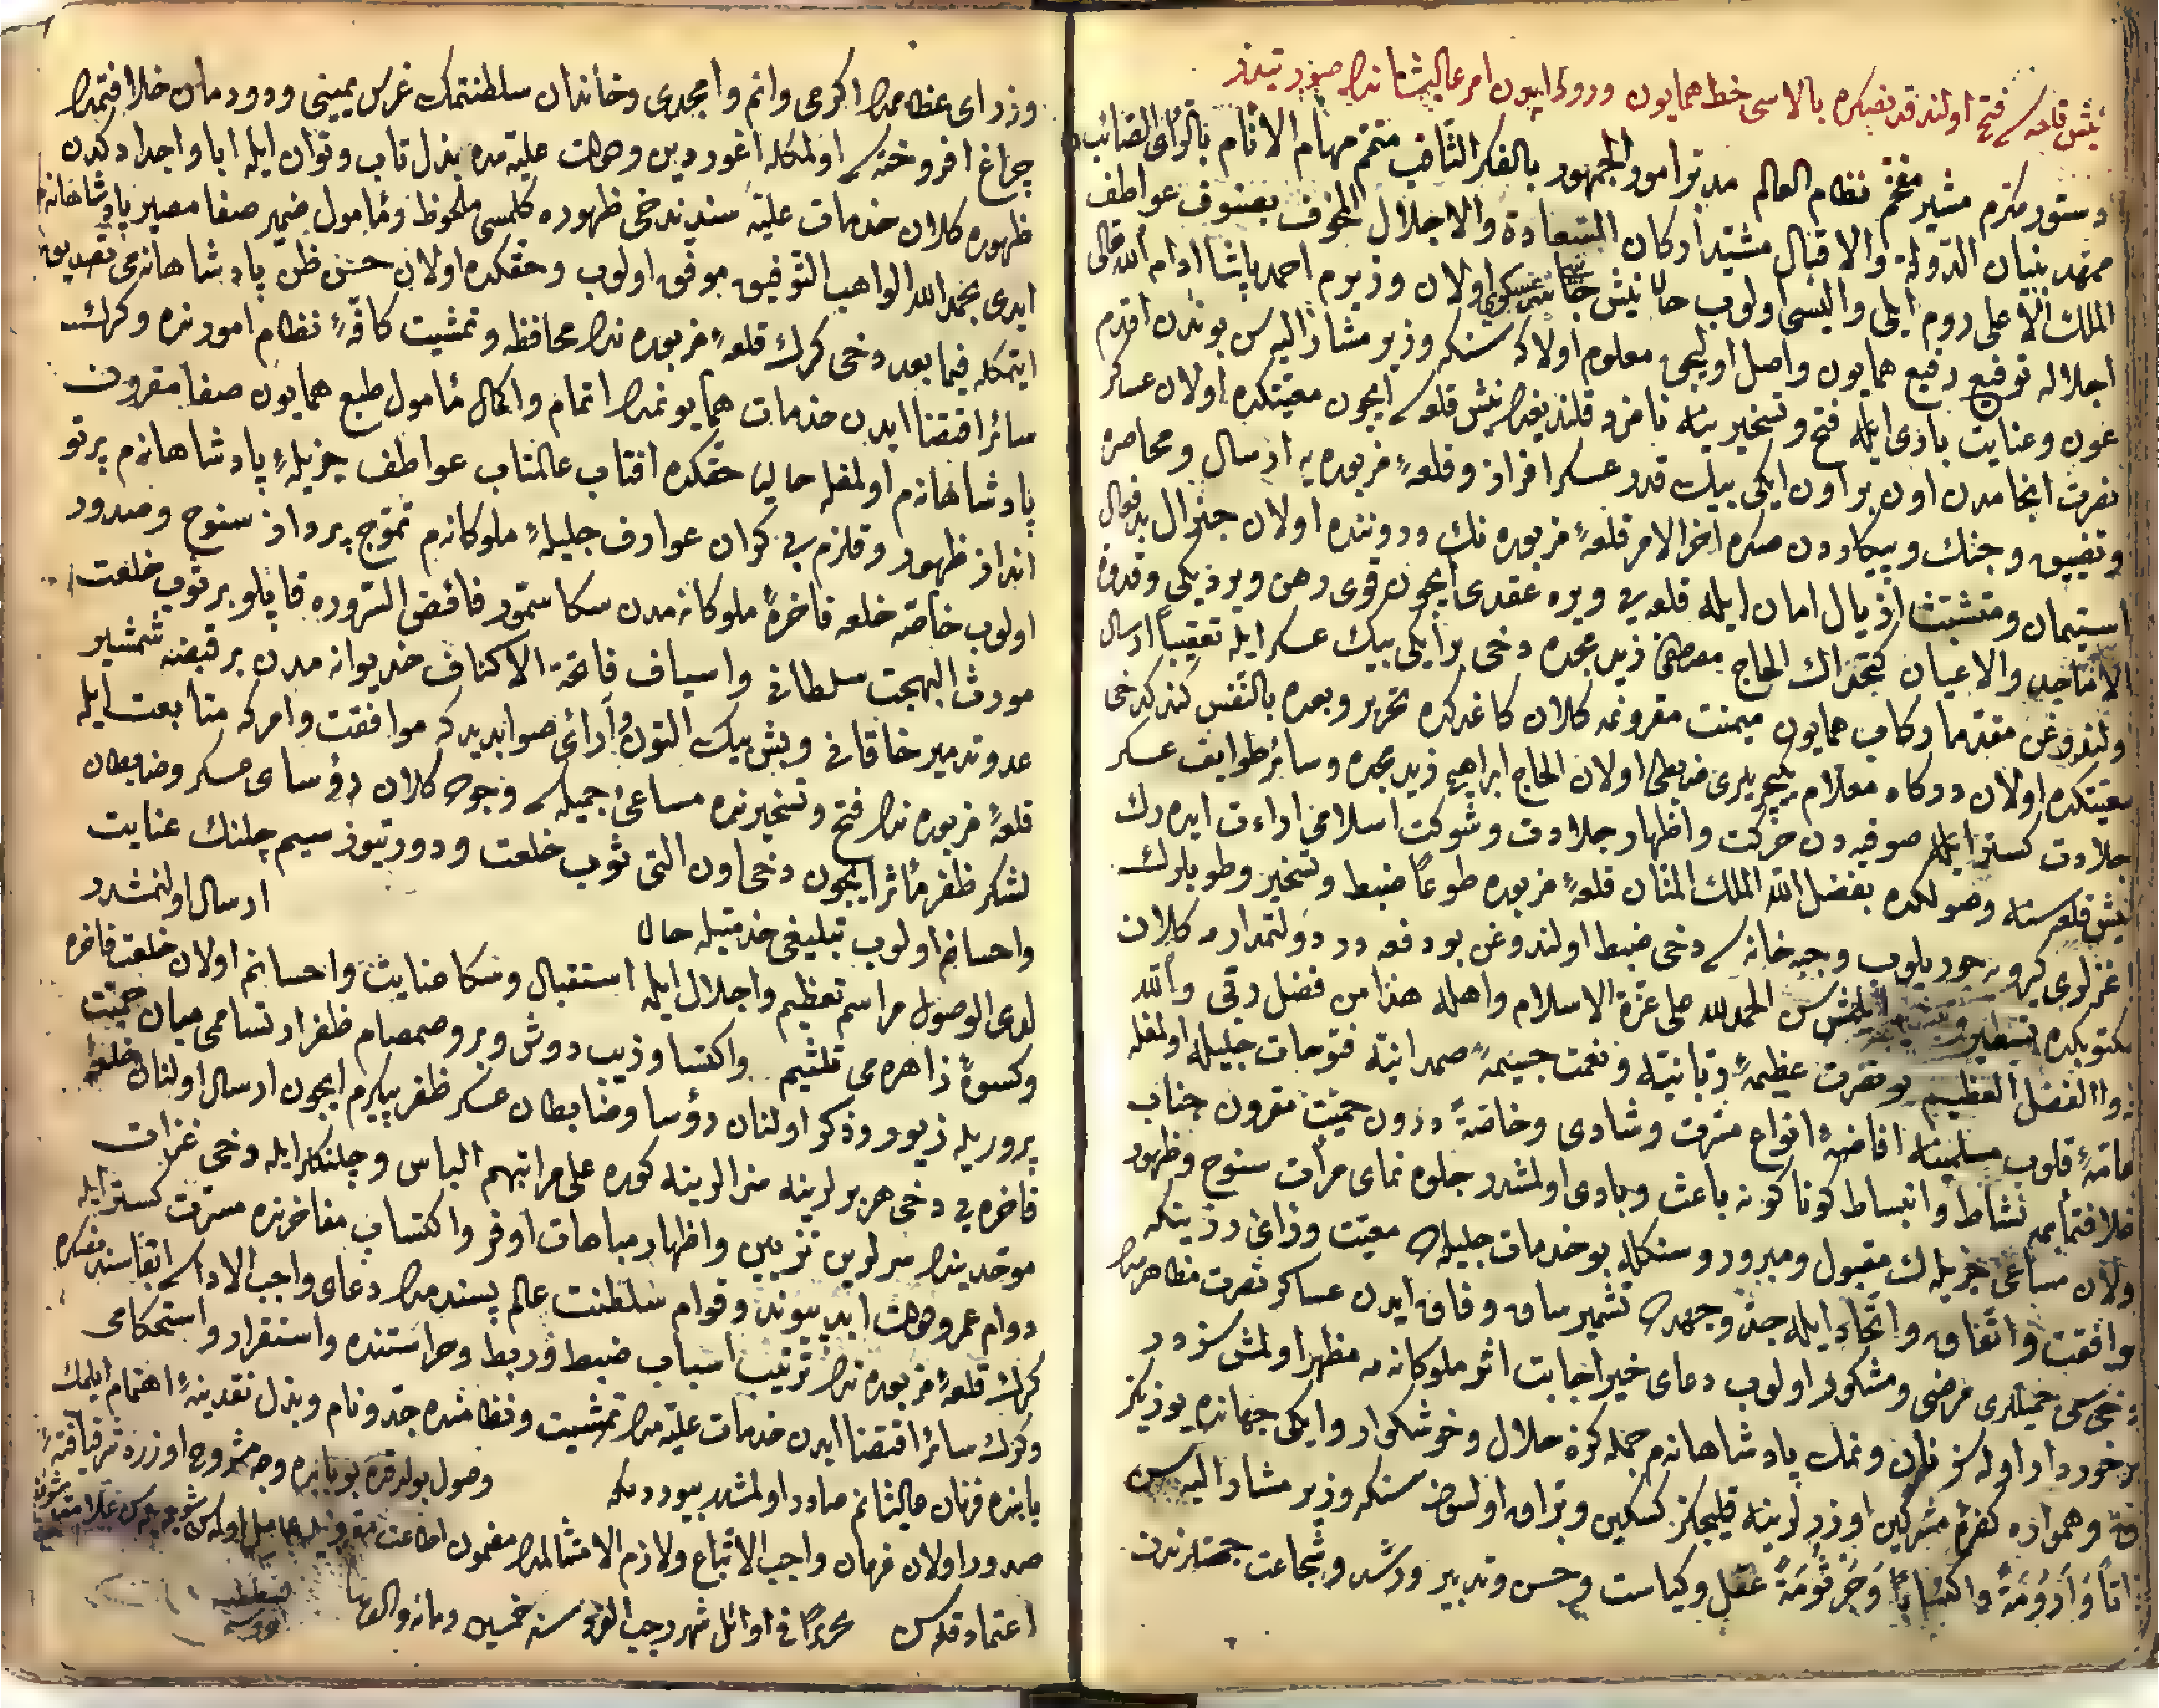 نیش قلعه سی فتح اولندقدنصکره بالاسی خط همایون ورود ایدن امر عالیشانك صورتیدر
دستور مکرم مشیر مفخم نظام العالم مدبر امور الجمهور بالفکر الثاقب متمم مهام الانام بالرأی الصائب
ممهد بنیان الدولة والاقبال مشید ارکان السعادة والاجلال المحفوف بصنوف عواطف
الملك الاعلی روم ایلی والیسی اولوب حالا نیش جانبی سرعسکری اولان وزیرم احمد پاشا ادام الله تعالی
اجلاله توقیع رفیع همایون واصل اولیجق معلوم اولاکه سنکه وزیر مشار الیهسن بوندن اقدم
عون وعنایت باری ایله فتح وتسخیرینه نامزد قلندیغك نیش قلعه سی ایچون معیتکده اولان عساکر
نصرت انجامدن اون بر اون ایکی بیك قدر عسکر افراز وقلعه مزبوره یه ارسال ومحاصره
وتضییق وجنك وپیکاردن صکره اخر الامر قلعه مزبوره نك درونده اولان جنرال
استیمان ومتشبث اذیال امان ایله قلعه یی ویره عقدی ایچون قوی رهن ویردیکی وقدوة
الاماجد والاعیان کتخداك الحاج مصطفی زید مجده دخی بر ایکی بیك عسکر ایله تعقیبا ارسال
ولندوغن مقدما رکاب همایون میمنت مقرونمه کلان کاغدکده تحریر وبعده بالنفس کندك دخی
معیتکده اولان درکاه معلام یکیچریلری ضابطی اولان الحاج ابراهیم زید مجده وسائر طوایف عسکر
جلادت کستر ایله صوفیه دن حرکت واظهار جلادت وشوکت اسلامی اراءت ایدرك
نیش قلعه سنه وصولکده بفضل الله الملك المنان قلعه مزبوره طوعا ضبط وتسخیر وطوپلرك
اغزلری کیرویه چوریلوب وجبه خانه سی دخی ضبط اولندوغن بو دفعه در دولتمداره کلان
مکتوبکده تسطیر ایلمشسن الحمد لله علی عزة الاسلام واهله هذا من فضل ربی والله
ذو الفضل العظیم بو نصرت عظیمه ربانیه ونعمت جسیمه صمدانیه فتوحات جلیله اولمغله
عامه قلوب مسلمینه افاضه انواع مسرت وشادی وخاصة درون حمیت مقرون جناب
خلافتمآبمه نشاط وانبساط کوناکونه باعث وبادی اولمشدر جلوه نمای مرآت سنوح وظهور
ولان مساعی جزیله ك مقبول ومبرور وسنکله بو خدمات جلیله ده معیت وزانوی درنیکه
موافقت واتفاق واتحاد ایله جد وجهده تشمیر ساق وفاق ایدن عساکر نصرت مظاهرمك
دخی سعی جمیللری مرضی ومشکور اولوب دعای خیر اجابت اثر ملوکانه مه مظهر اولمش سزدر
برخوردار اوله سز نان ونمك پادشاهانه م جمله کزه حلال وخوشکوار وایکی جهانده یوزیکز
اق وهمواره کفره مشرکین اوزرلرینه قلیجکز کسکین وبراق اولسون سنکه وزیر مشار الیهسن
ذاتا وارومة واکتسابا وجرثومة عقل وکیاست وحسن وتدبیر ورشد وشجاعت جهتلرندن
وزرای عظاممك اکرمی واتم وامجدی وخاندان سلطنتمك غرس یمینی ودودمان خلافتمك
چراغ افروخته سی اولمکله اغور دین ودولت علیه مده بذل تاب وتوان ایله ابا واجدادکدن
ظهوره کلان خدمات علیه سندن دخی ظهوره کلمسی ملحوظ ومأمول ضمیر صفا مصیر پادشاهانه م
ایدی بحمد الله الواهب التوفیق موفق اولوب وحقکده اولان حسن ظن پادشاهانه می تصدیق
ایتمکله فیما بعد دخی کرك قلعه مزبوره نك محافظه وتمشیت کافه نظام امورنده وکرك
سائر اقتضا ایدن خدمات همایونمك اتمام واکمالی مأمول طبع همایون صفا مقرون
پادشاهانه م اولمغله حالیا حقکده افتاب عالمتاب عواطف جزیله پادشاهانه م پرتو
انداز ظهور وقلزم بی کران عوارف جلیله ملوکانه م تموج پرداز سنوح وصدور
اولوب خاصه خلعه فاخره ملوکانه مدن سکا سمور فائض السروره قاپلو بر ثوب خلعت
مورث البهجت سلطانی واسیاف فاتحة الاکناف خدیوانه مدن بر قبضه شمشیر
عدو تدمیر خاقانی وبش بیك التون وآرای صوابدیدکه موافقت وامرکه متابعت ایله
قلعه مزبوره نك فتح وتسخیرنده مساعی جمیله سی وجوده کلان رؤسای عسکر وضابطان
لشکر ظفر مآثر ایچون دخی اون التی ثوب خلعت ودورتیوز سیم چلنك عنایت
واحسانم اولوب تبلیغی خدمتیله حالا ارسال اولنمشدر
لدی الوصول مراسم تعظیم واجلال ایله استقبال وسکا عنایت واحسانم اولان خلعت فاخره
وکسوه زاهره یی تلثیم واکتسا وزیب دوش وبر وصمصام ظفر ارتسامی میان حمیت
پروریله زیور وذکر اولنان رؤسا وضابطان عسکر ظفر پیکرم ایچون ارسال اولنان خلع
فاخره یی دخی هر برلرینه منزللرینه کوره علی مراتبهم الباس وچلنکلر ایله دخی غزات
موحدینك سرلرین تزیین واظهار مباهات اوفر واکتساب مفاخرنده مسرت کستر ایله
دوام عمر ودولت ابد پیوند وقوام سلطنت عالم پسندمك دعای واجب الاداسی ابقاسندنصکره
کرك قلعه مزبوره نك ترتیب اسباب ضبط وربط وحراستنده واستقرار واستحکامی
وکرك سائر اقتضا ایدن خدمات علیه مك تمشیت ونظامنده جد وتام وبذل نقدینه اهتمام ایلمك
بابنده فرمان عالیشانم صادر اولمشدر بیوردمکه وصول بولدقده بو بابده وجه مشروح اوزره شرفیافته
صدور اولان فرمان واجب الاتباع ولازم الامتثالمك مضمون اطاعت مقرونیله عامل اوله سن شویله بیله سن علامت شریفه
اعتماد قله سن تحریرا فی اوائل شهر رجب الفرد سنه خمسین ومائه والف
قسطنطنیه